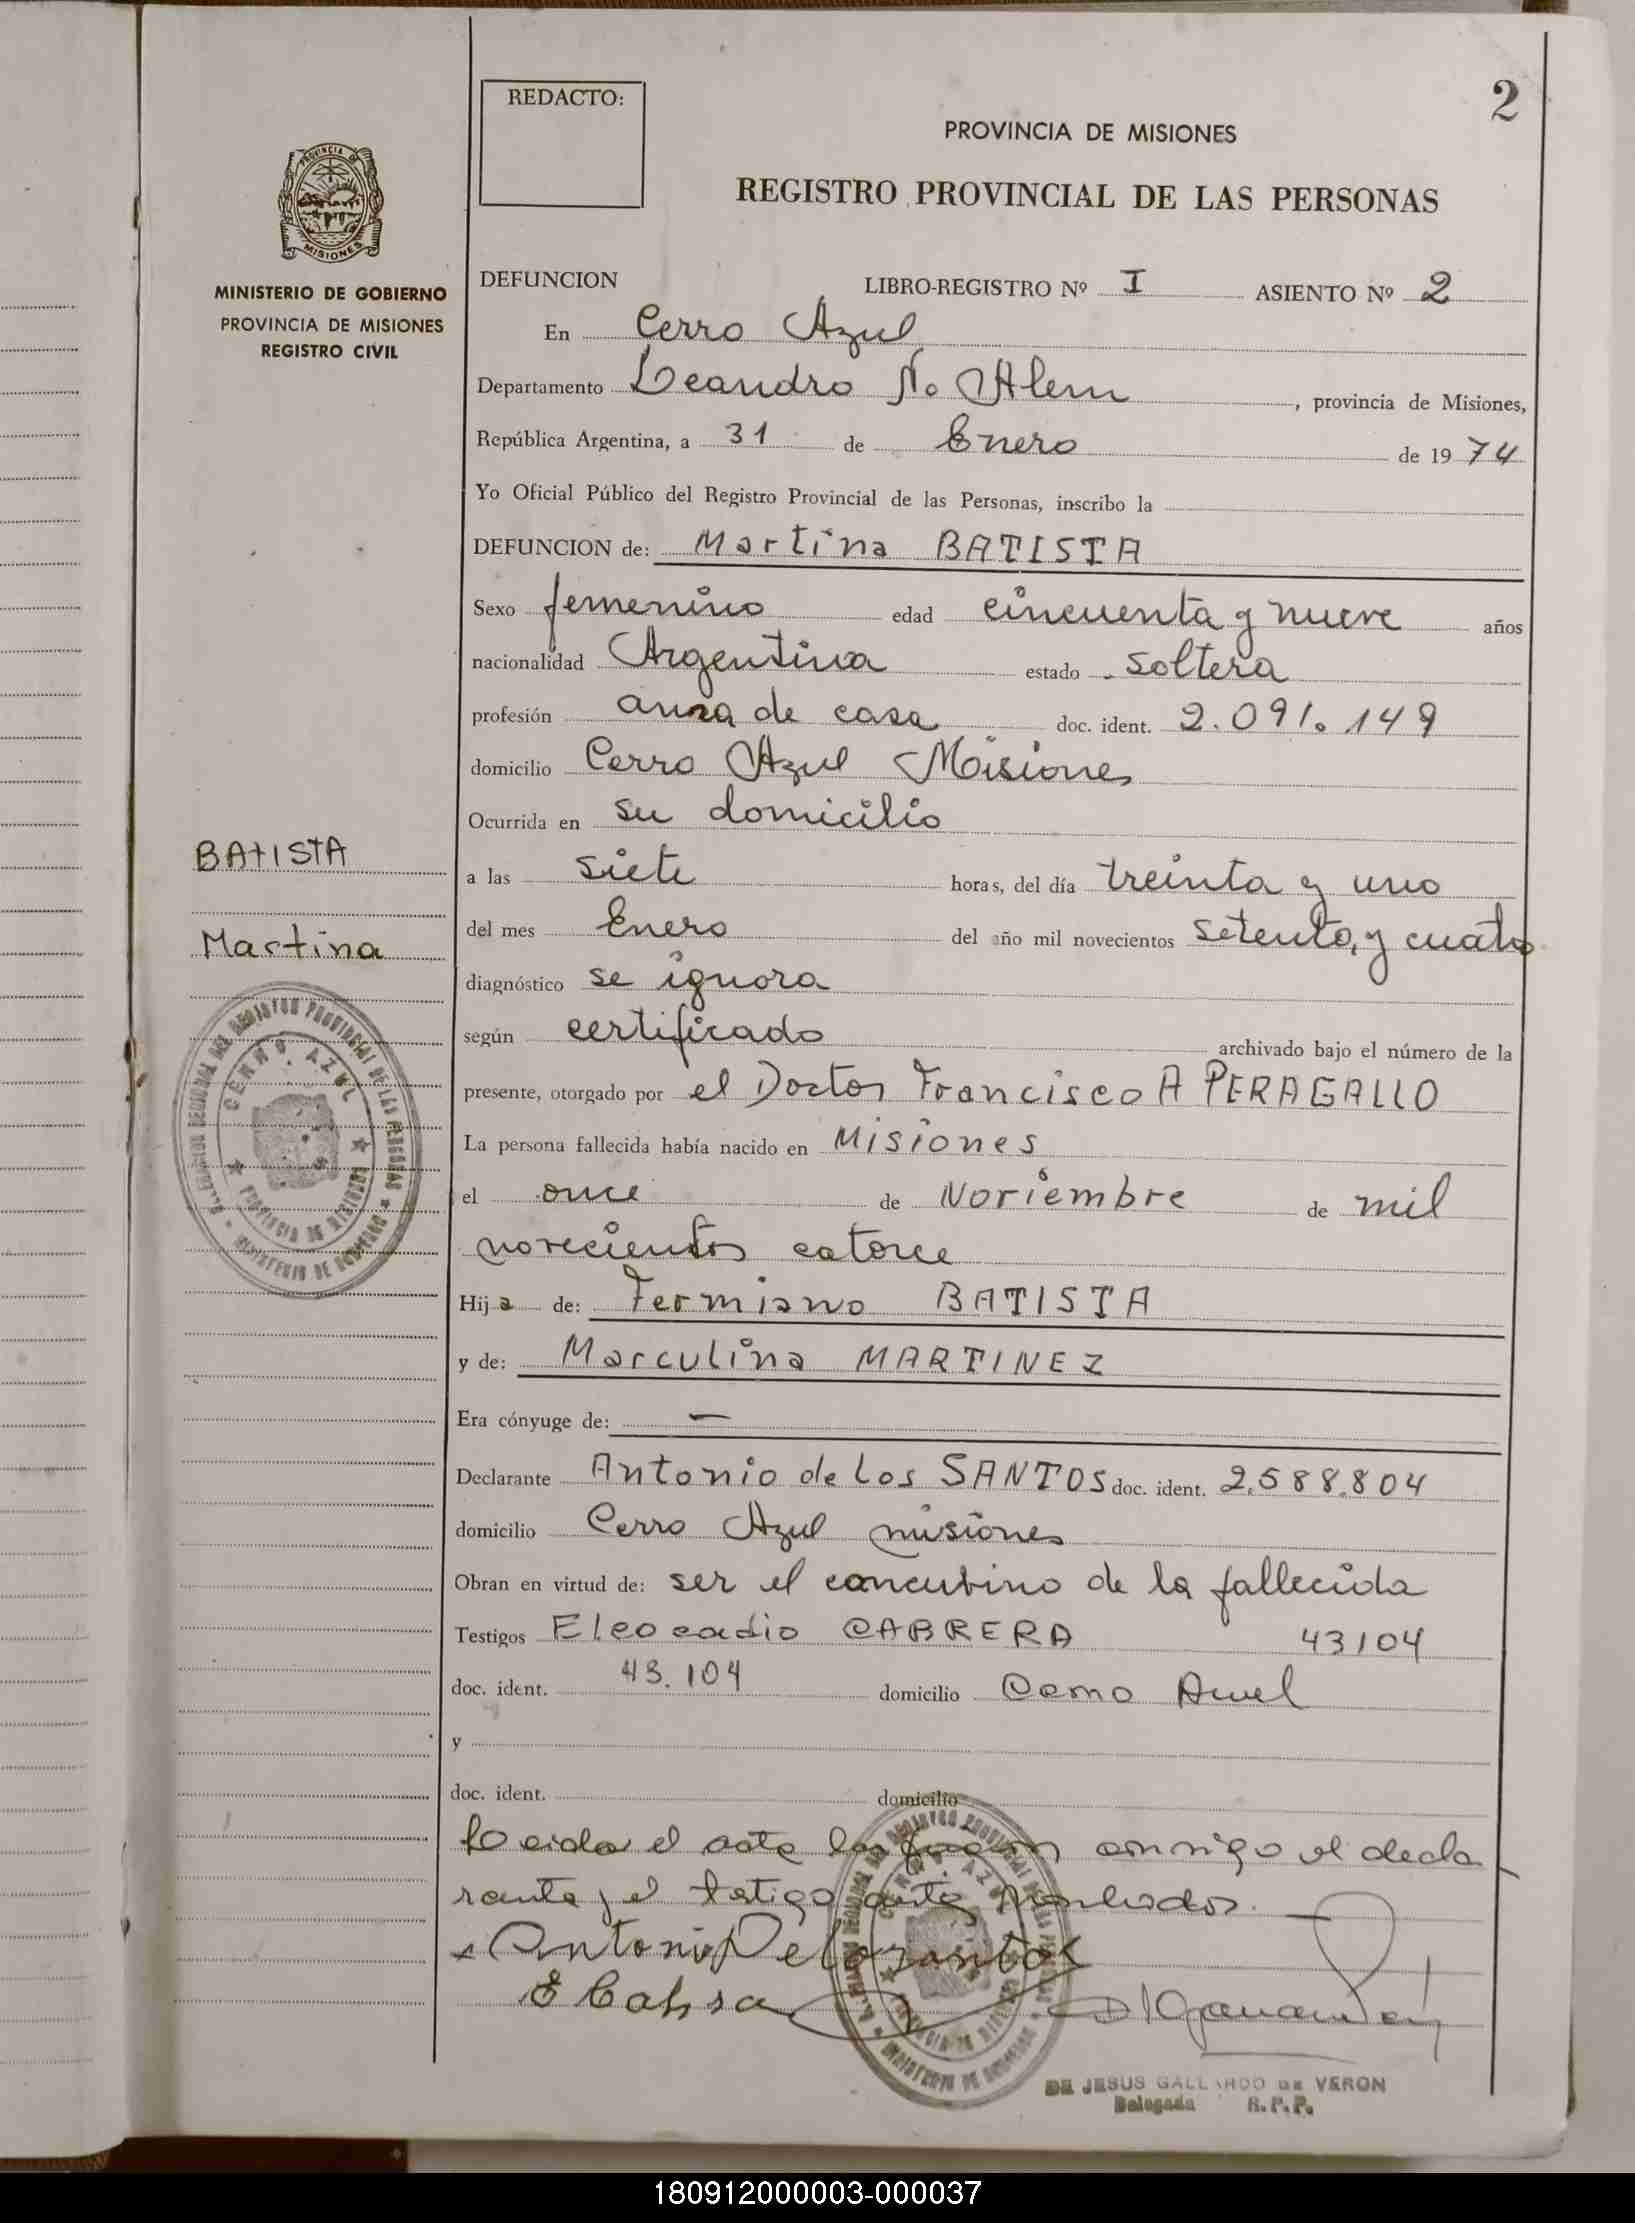 2
REDACTO:
PROVINCIA DE MISIONES
REGISTRO PROVINCIAL DE LAS PERSONAS
PROVINCIA DE
MISIONES
MINISTERIO DE GOBIERNO
PROVINCIA DE MISIONES
REGISTRO CIVIL
DEFUNCION LIBRO-REGISTRO Nº I ASIENTO Nº 2
En Cerro Azul
Departamento Leandro N. Alem, provincia de Misiones,
República Argentina, a 31 de Enero de 1974
Yo Oficial Público del Registro Provincial de las Personas, inscribo la
DEFUNCION de: Martina BATISTA
Sexo femenino edad cincuenta y nueve años
nacionalidad Argentina estado soltera
profesión ama de casa doc. ident. 2.091.149
domicilio Cerro Azul Misiones
Ocurrida en su domicilio
BATISTA
a las siete horas, del día treinta y uno
del mes Enero del año mil novecientos setenta y cuatro
Martina
diagnóstico se ignora
según certificado archivado bajo el número de la
presente, otorgado por el Doctor Francisco A PERAGALLO
La persona fallecida había nacido en Misiones
el once de Noviembre de mil
novecientos catorce
Hija de: Fermiano BATISTA
y de: Marculina MARTINEZ
Era cónyuge de: —
Declarante Antonio de Los SANTOS doc. ident. 2.588.804
domicilio Cerro Azul misiones
Obran en virtud de: ser el concubino de la fallecida
Testigos Eleocadio CABRERA 43104
doc. ident. 43.104 domicilio Cerro Azul
y
doc. ident. domicilio
el acta conmigo el decla
rante y el testigo
Antonio Delosantos
DE JESUS GALLARDO DE VERON
Delegada R.P.P.
REGISTRO PROVINCIAL DE LAS PERSONAS
CERRO AZUL
PROVINCIA DE MISIONES
MINISTERIO DE GOBIERNO
180912000003-000037